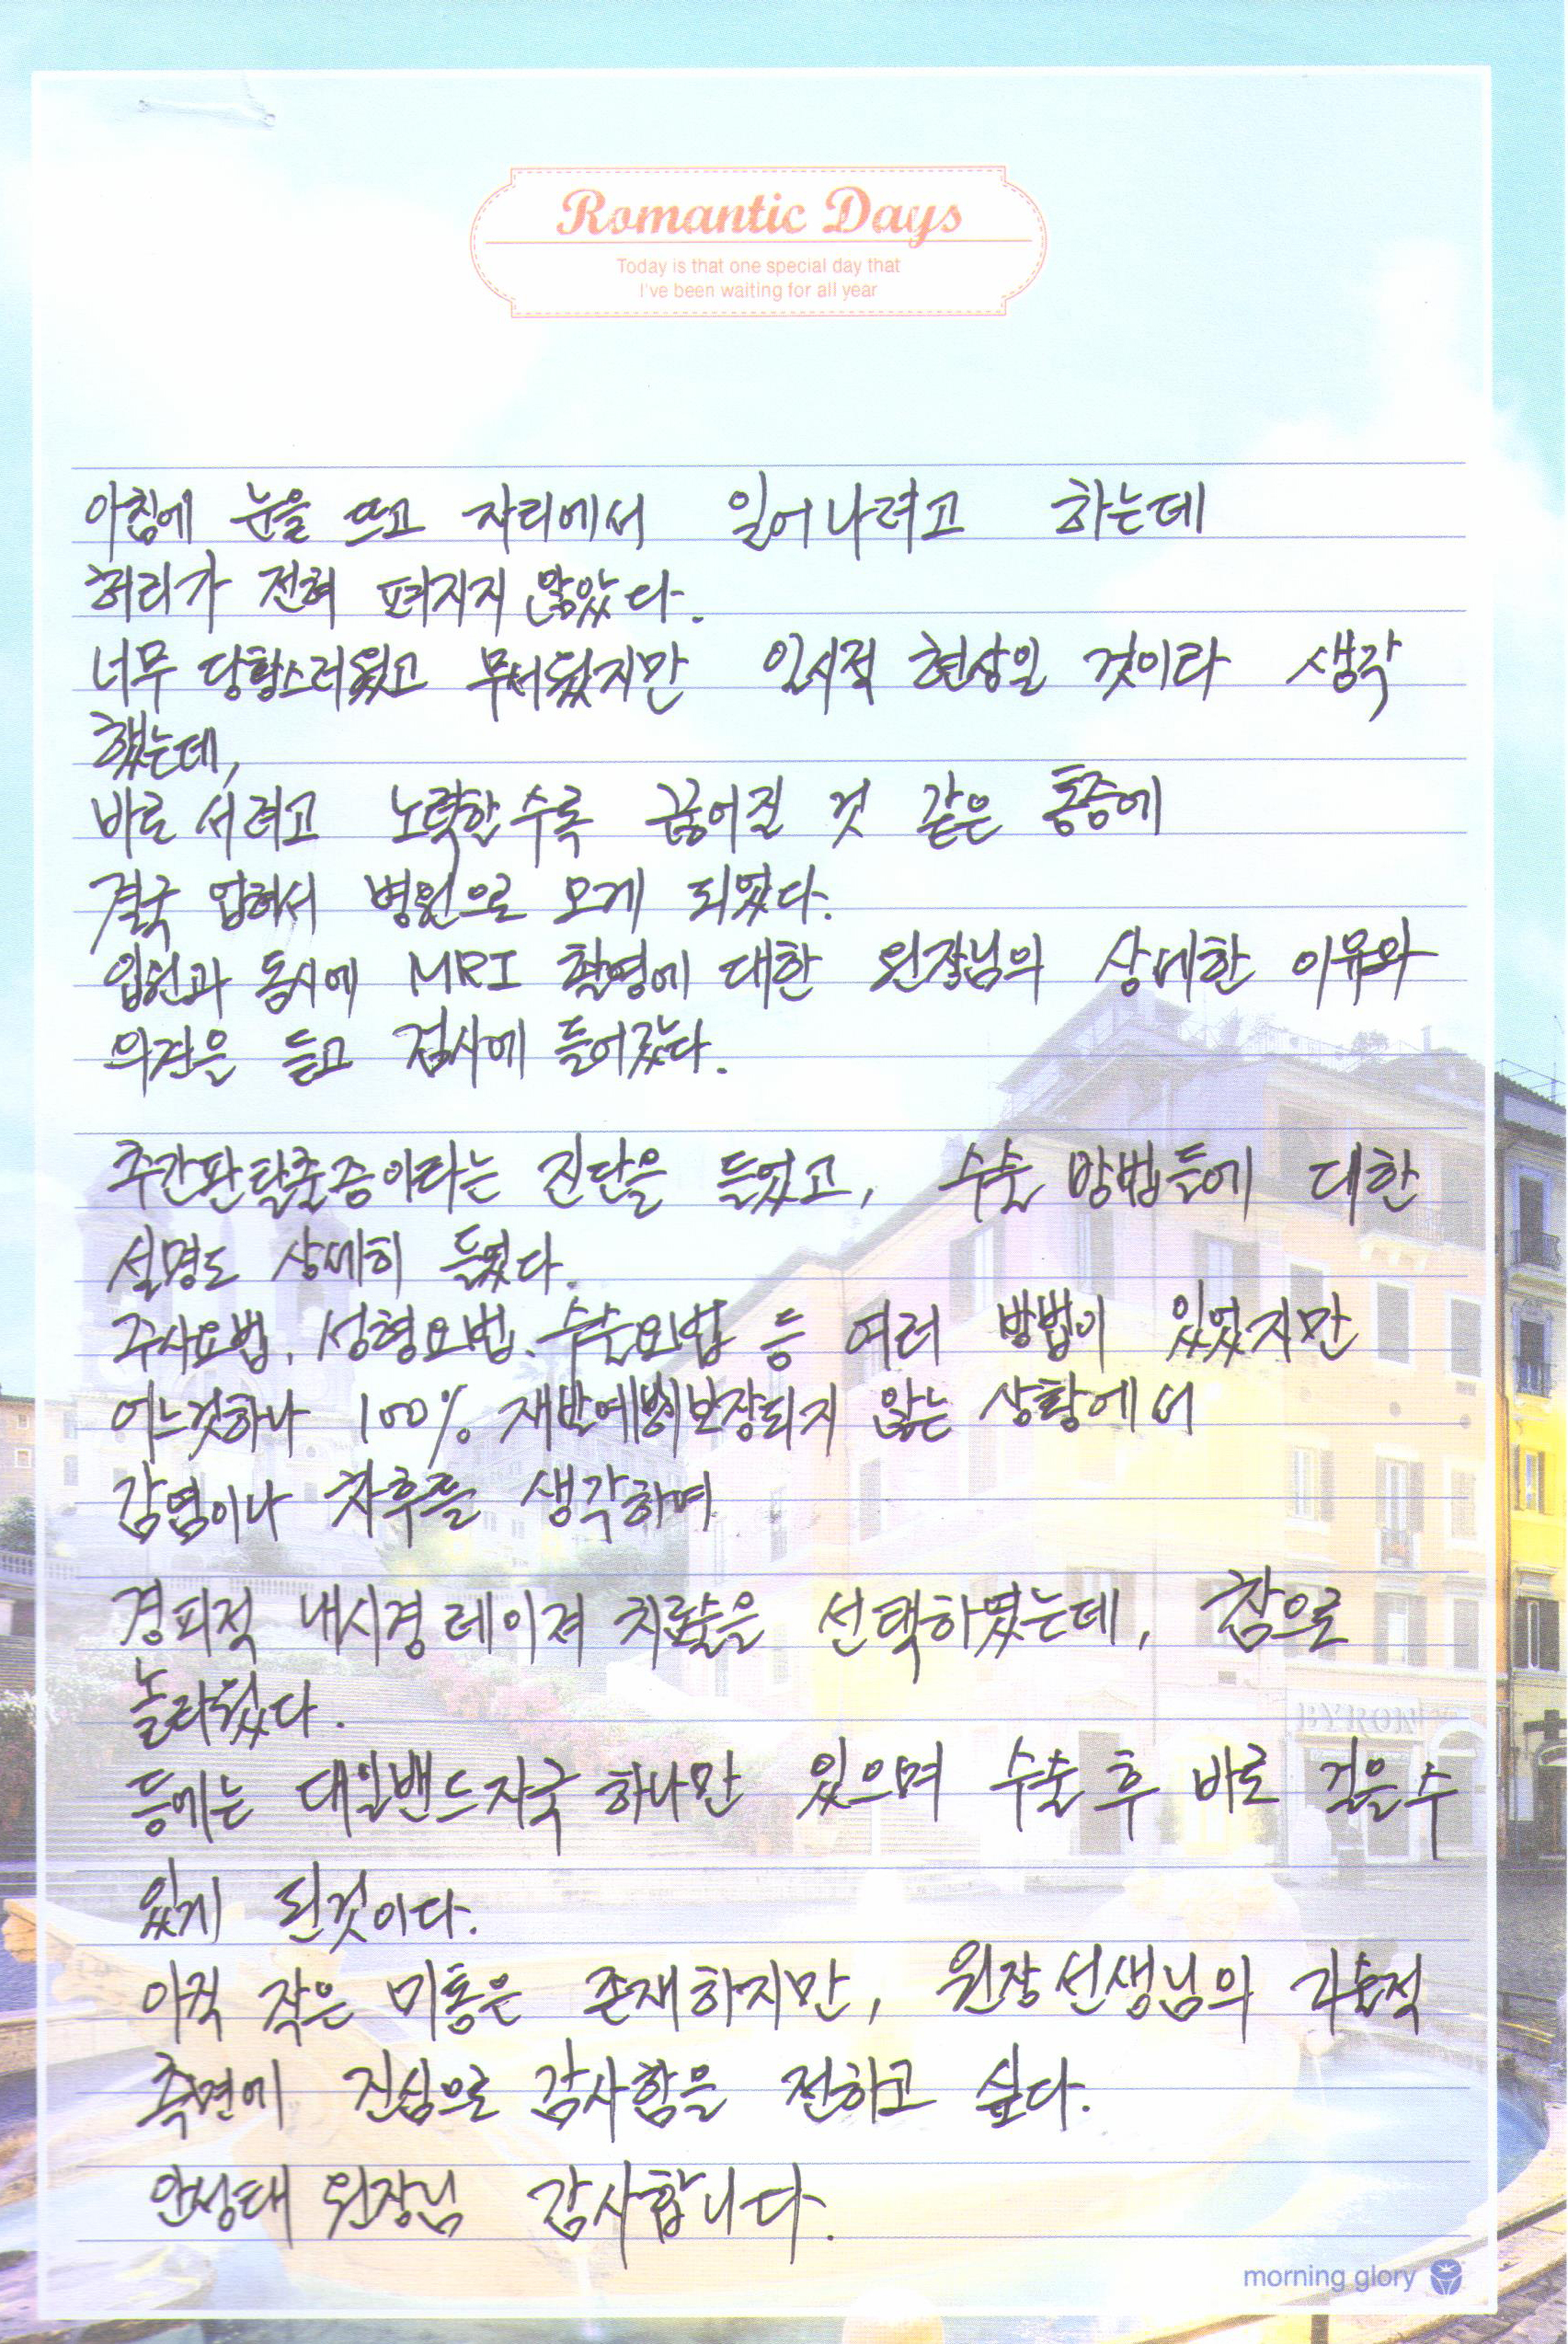 Romantic Days
Today is that one special day that
I've been waiting for all year
아침에 눈을 뜨고 자리에서 일어나려고 하는데
허리가 전혀 펴지지 않았다.
너무 당황스러웠고 무서웠지만 일시적 현상일 것이라 생각
했는데,
바로 서려고 노력할수록 끊어질 것 같은 통증에
결국 업혀서 병원으로 오게 되었다.
입원과 동시에 MRI 촬영에 대한 원장님의 상세한 이유와
의견을 듣고 검사에 들어갔다.
추간판탈출증이라는 진단을 들었고, 수술 방법들에 대한
설명도 상세히 들었다.
주사요법, 성형요법, 수술요법 등 여러 방법이 있었지만
어느것하나 100% 재발예방이보장되지 않는 상황에서
감염이나 차후를 생각하며
경피적 내시경 레이져 치료술을 선택하였는데, 참으로
놀라웠다.
등에는 대일밴드자국 하나만 있으며 수술 후 바로 걸을수
있게 된것이다.
아직 작은 미통은 존재하지만, 원장선생님의 기술적
측면에 진심으로 감사함을 전하고 싶다.
안성태 원장님 감사합니다.
morning glory